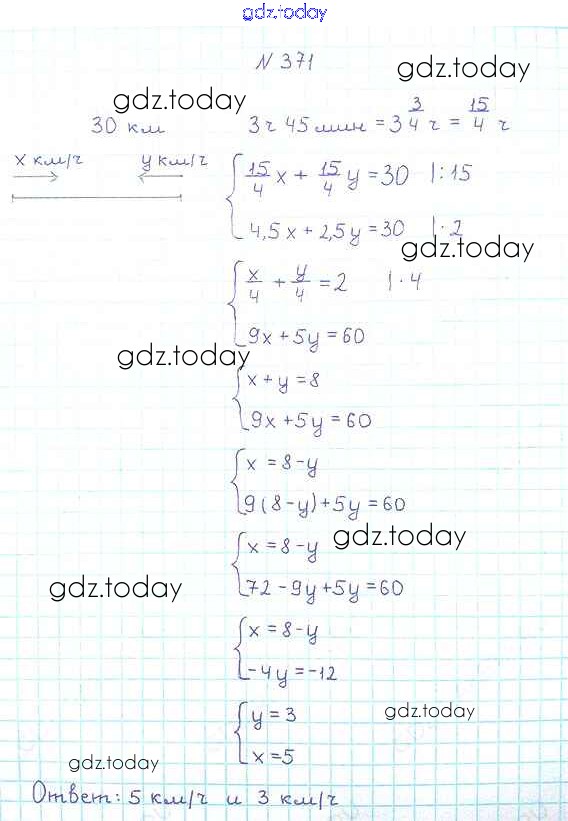 gdz.today
N 371
gdz.today
gdz.today
30 км 3 ч 45 мин = 3 3/4 ч = 15/4 ч
x км/ч y км/ч
15/4 x + 15/4 y = 30 |: 15
4,5x + 2,5y = 30 |· 2
gdz.today
x/4 + y/4 = 2 |· 4
9x + 5y = 60
gdz.today
x + y = 8
9x + 5y = 60
x = 8 - y
9(8 - y) + 5y = 60
gdz.today
x = 8 - y
gdz.today
72 - 9y + 5y = 60
x = 8 - y
-4y = -12
y = 3
gdz.today
x = 5
gdz.today
Ответ: 5 км/ч и 3 км/ч